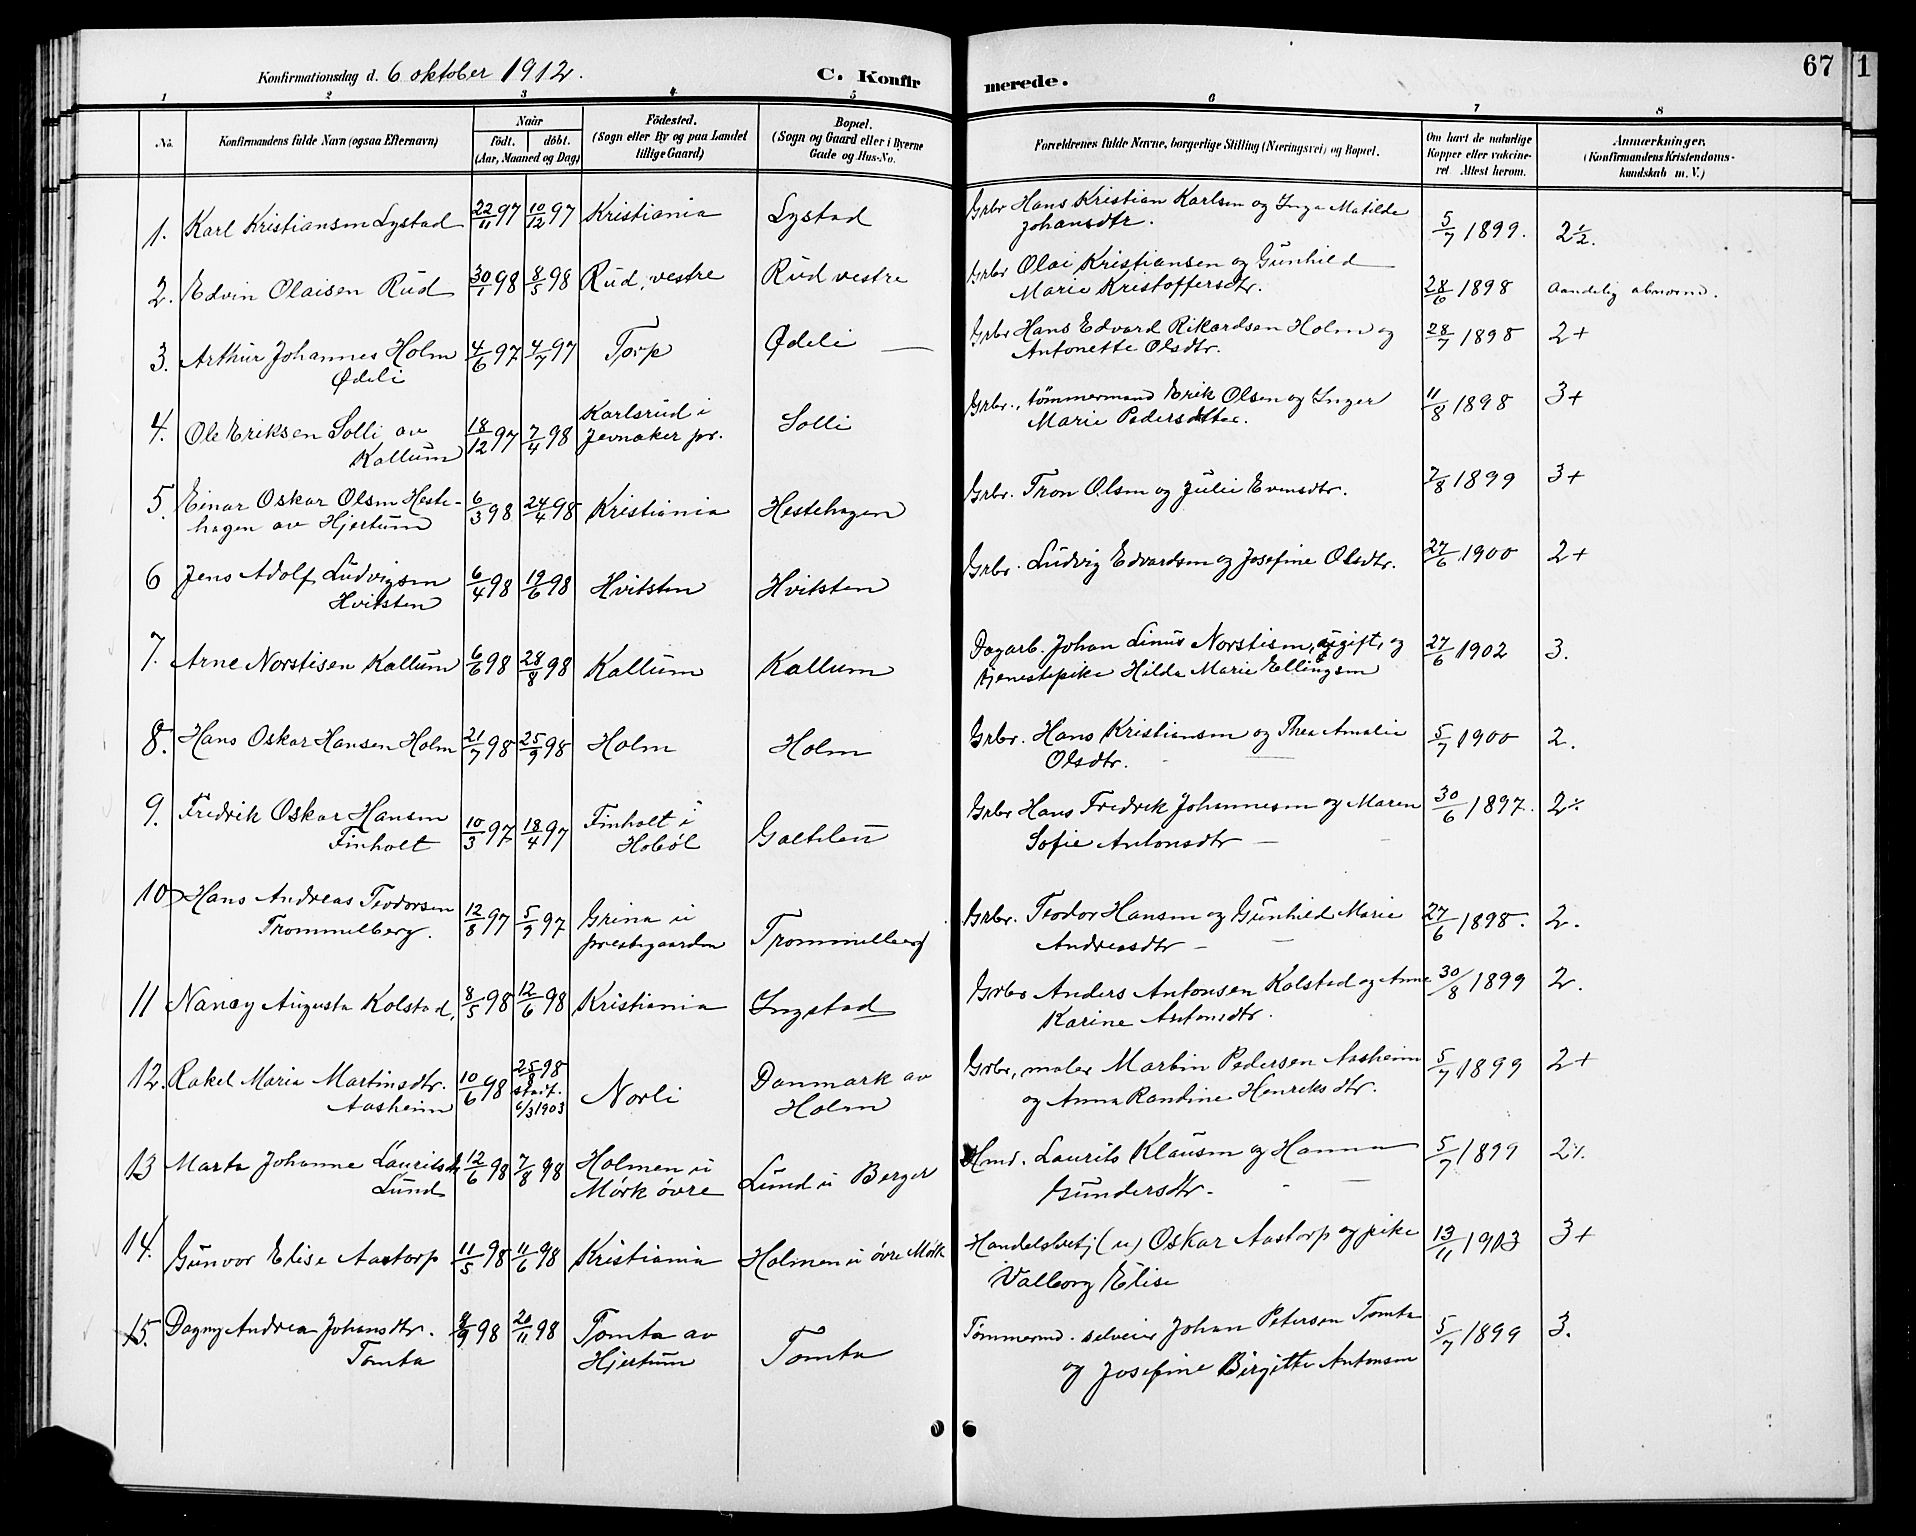 Konfirmationsdag d. 6 oktober 1912. C. Konfir
merede. 67 1
1 2 3 4 5 6 7 8
No. Konfirmandens fulde Navn (ogsaa Efternavn) Naar født. døbt. (Aar, Maaned og Dag) Fødested. (Sogn eller By og paa Landet tillige Gaard) Bopæl. (Sogn og Gaard eller i Byerne Gade og Hus-No. Forældrenes fulde Navne, borgerlige Stilling (Næringsvei) og Bopæl. Om havt de naturlige Kopper eller vakcineret. Attest herom. Anmærkninger. (Konfirmandens Kristendomskundskab m. V.)
1. Karl Kristiansen Lystad 22/11 97 10/12 97 Kristiania Lystad Grbr Hans Kristian Karlsen og Inga Matilde
Johansdtr. 5/7 1899. 2½.
2. Edvin Olaisen Rud 30/1 98 8/5 98 Rud, vestre Rud vestre Grbr Olai Kristiansen og Gunhild
Marie Kristoffersdtr. 28/6 1898 Aandelig abnorm.
3. Arthur Johannes Holm 4/6 97 4/7 97 Torp Ødeli Grbr Hans Edvard Rikardsen Holm og
Ødeli Antonette Olsdtr. 28/7 1898 2+
4. Ole Eriksen Solli av 18/12 97 7/4 98 Karlsrud i Solli Grbr., tømmermand Erik Olsen og Inger
Kallum Jevnaker pr. Marie Pedersdtter. 11/8 1898 3+
5. Einar Oskar Olsen Heste- 6/3 98 24/4 98 Kristiania Hestehagen Grbr. Tron Olsen og Julie Evensdtr. 7/8 1899 3+
hagen av Hjertum
6 Jens Adolf Ludvigsen 6/4 98 19/6 98 Hvitsten Hvitsten Grbr. Ludvig Edvardsen og Josefine Olsdtr. 27/6 1900 2+
Hvitsten
7. Arne Norstisen Kallum 6/6 98 28/8 98 Kallum Kallum Dagarb. Johan Linus Norstisen, ugift, og 27/6 1902 3.
tjenestepike Hilda Marie Ellingsen
8. Hans Oskar Hansen Holm 21/7 98 25/9 98 Holm Holm Grbr. Hans Kristiansen og Thea Amalie 5/7 1900 2.
Olsdtr.
9. Fredrik Oskar Hansen 10/3 97 18/4 97 Finholt i Grbr Hans Fredrik Johannesen og Maren 30/6 1897. 2%
Finholt Hobøl Sofie Antonsdtr
10 Hans Andreas Teodorsen 12/8 97 5/9 97 Grina u Trommelberg Grbr. Teodor Hansen og Gunhild Marie 27/6 1898. 2.
Trommelberg. prestegaarden Andreasdtr
11 Nancy Augusta Kolstad, 8/5 98 12/6 98 Kristiania Ingstad Grbr Anders Antonsen Kolstad og Anne 30/8 1899 2.
Karine Antonsdtr.
12. Rakel Maria Martinsdtr. 10/6 98 25/9 98 Norli Danmark av Grbr, maler Martin Pedersen Aasheim 5/7 1899 2+
Aasheim stadf. 6/3 1903 Holm og Anna Randine Henriksdtr.
13 Marta Johanne Lauritsdtr 12/6 98 7/8 98 Holmen u Lund u Berger Hmd. Laurits Klausen og Hanna 5/7 1899 2%
Lund Mørk øvre Gundersdtr.
14. Gunvor Elise Aastorp 11/5 98 11/6 98 Kristiania Holmen u øvre Mørk Handelsbetj (u) Oskar Aastorp og pike 13/11 1903 3+
Valborg Elise
15. Dagny Andrea Johansdtr. 9/9 98 20/11 98 Tomta av Tomta Tømmermd. selveier Johan Petersen Tomta 5/7 1899 3.
Tomta Hjertum og Josefine Birgitte Antonsen